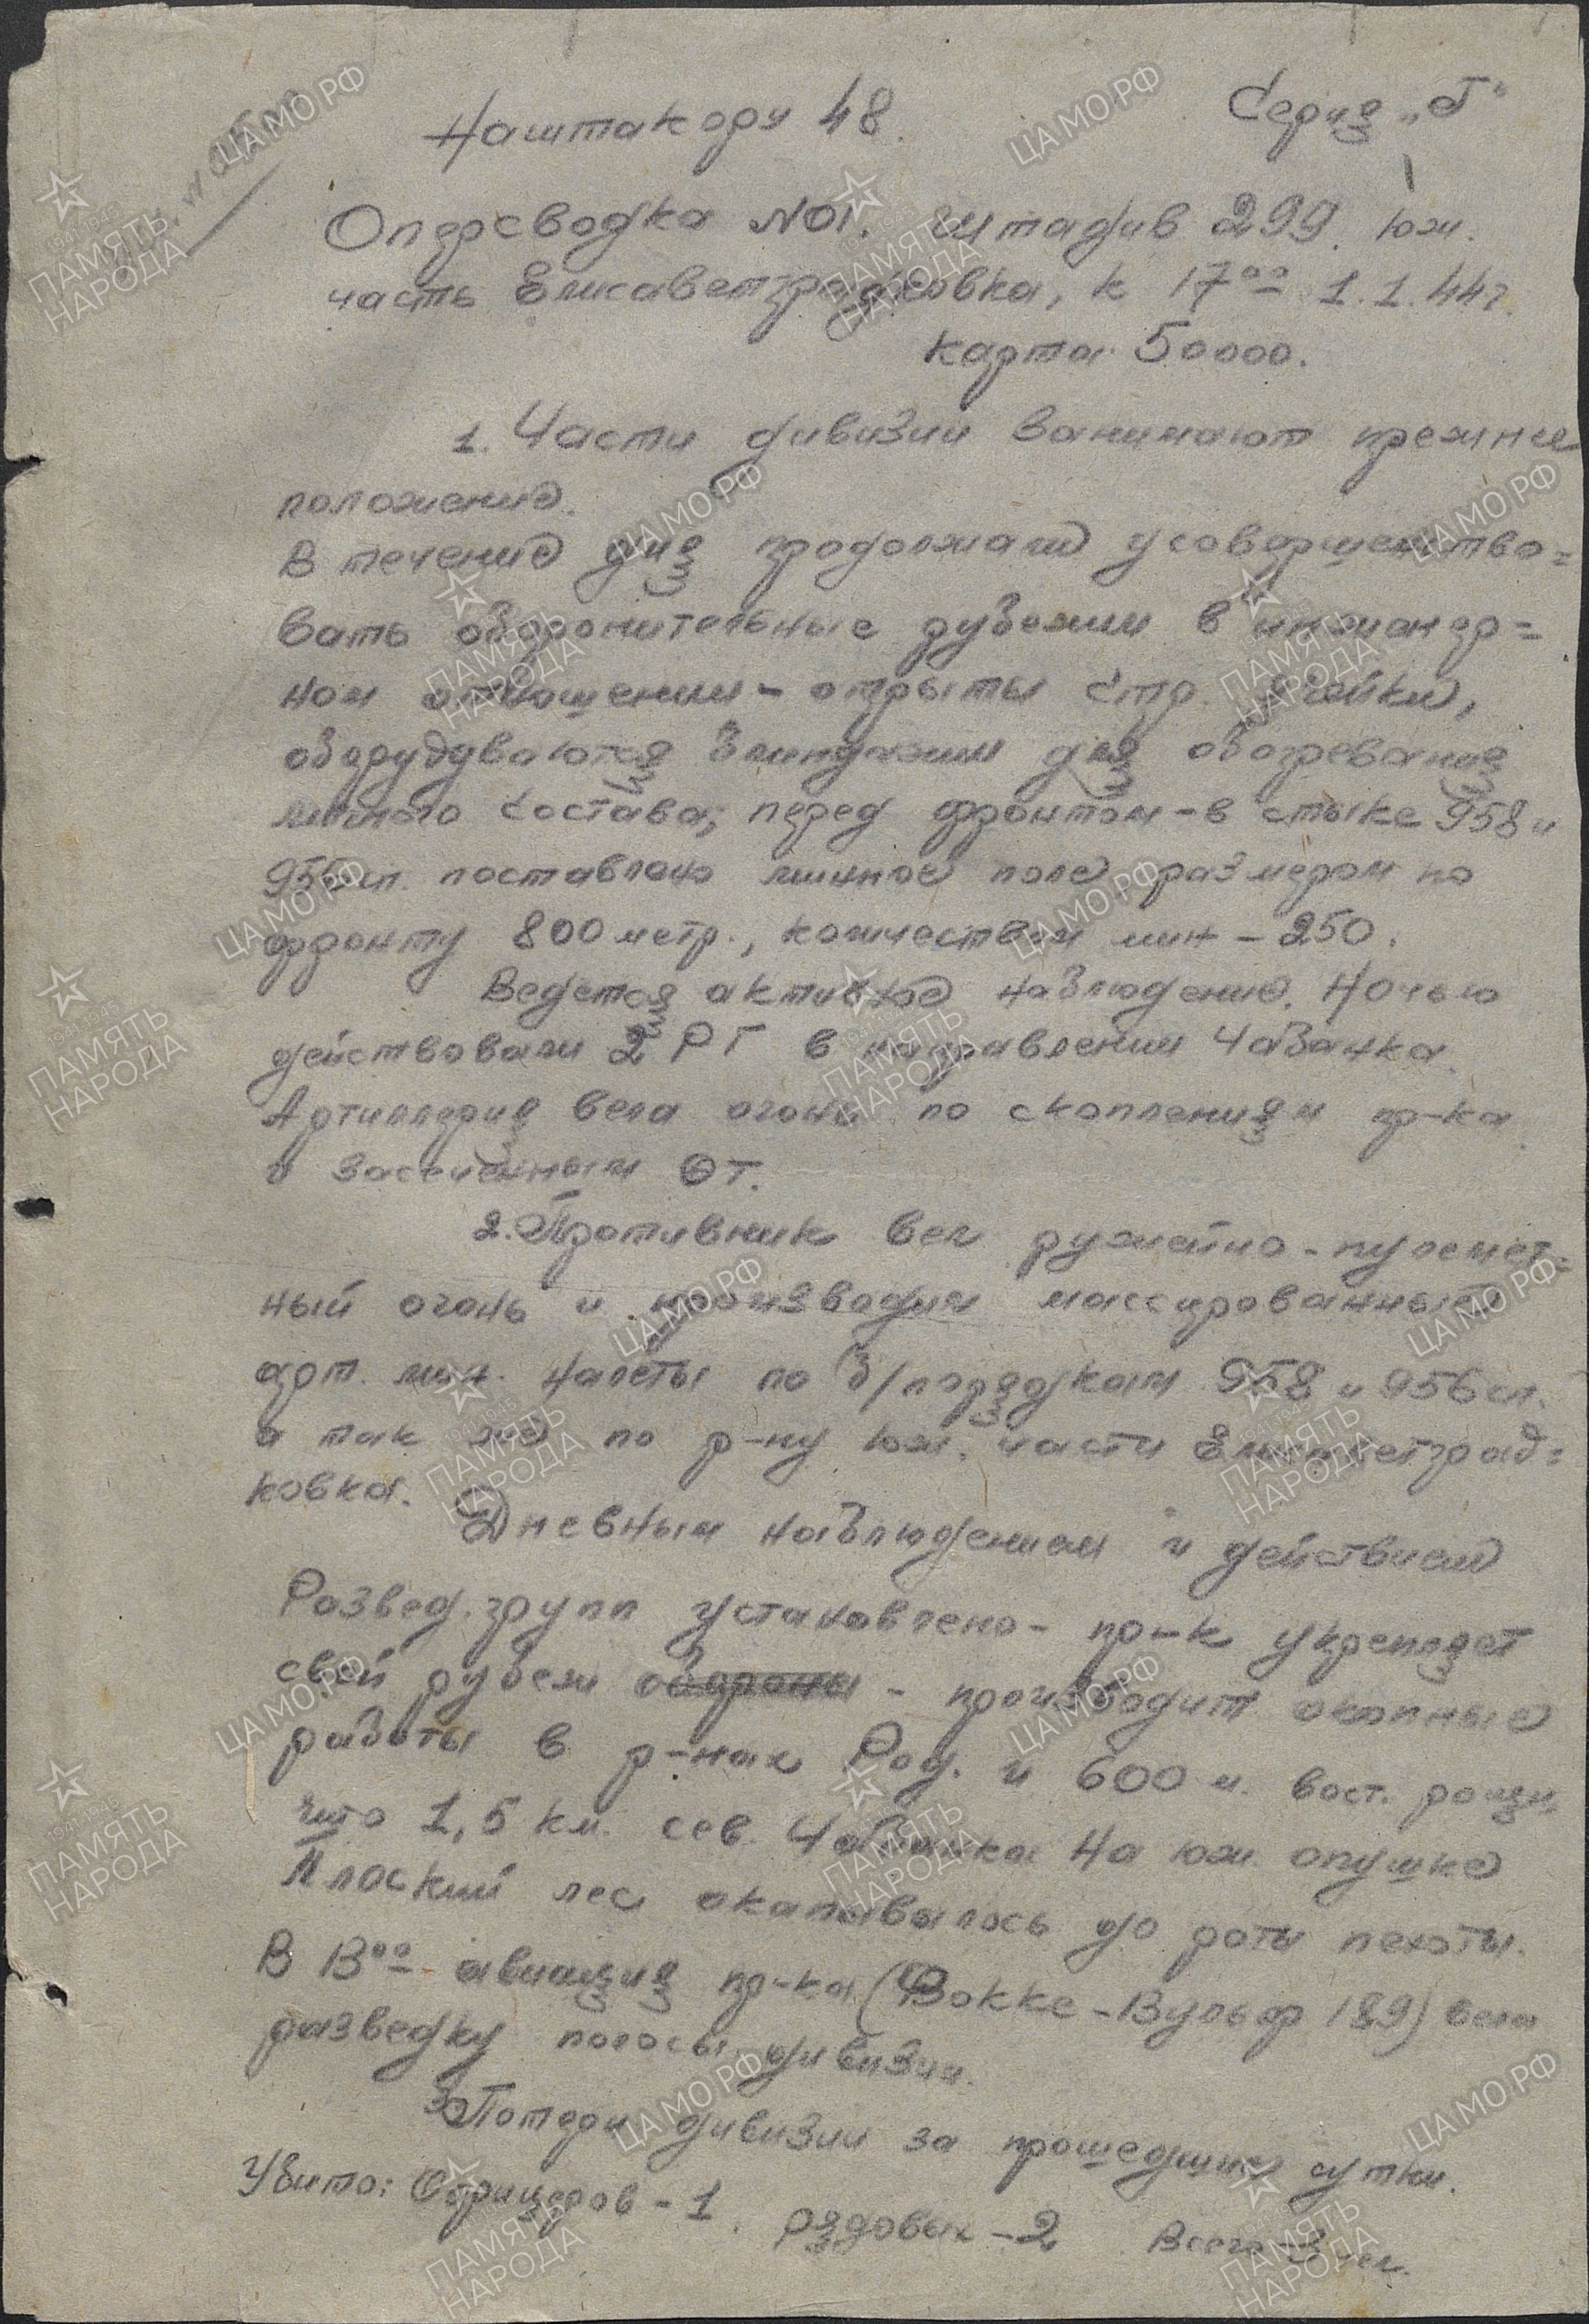 Наштакору 48. Серия „Г"
Оперсводка №01. Штадив 299. юж.
часть Елисаветградковка, к 17⁰⁰ 1.1.44г.
Карта 50000.
1. Части дивизии занимают прежнее
положение.
В течение дня продолжали усовершенство=
вать оборонительные рубежи в инженер=
ном отношении - отрыты стр. ячейки,
оборудуваются блиндажи для обогревания
личного состава; перед фронтом - в стыке 958 и
956 сп. поставлено минное поле размером по
фронту 800 метр., количеством мин - 250.
Ведется активное наблюдение. Ночью
действовали 2 РГ в направлении Чабанка.
Артиллерия вела огонь по скоплениям пр-ка
и засеченным ОТ.
2. Противник вел ружейно-пулемет=
ный огонь и производил массированные
арт. мин. налеты по б/порядкам 958 и 956 сп.
а так же по р-ну юж. части Елисаветград=
ковка.
Дневным наблюдением и действием
Развед. групп установлено - пр-к укрепляет
свой рубеж обороны - производит окопные
работы в р-нах Род. и 600 м. вост. рощи,
что 1,5 км. сев. Чабанка. На юж. опушке
Плоский лес окапывалось до роты пехоты.
В 13⁰⁰ авиация пр-ка (Фокке-Вульф 189) вела
разведку полосы дивизии.
3. Потери дивизии за прошедшие сутки.
Убито: Офицеров - 1. Рядовых - 2 Всего 3 чел.
ЦАМО.РФ
ПАМЯТЬ
НАРОДА
1941-1945